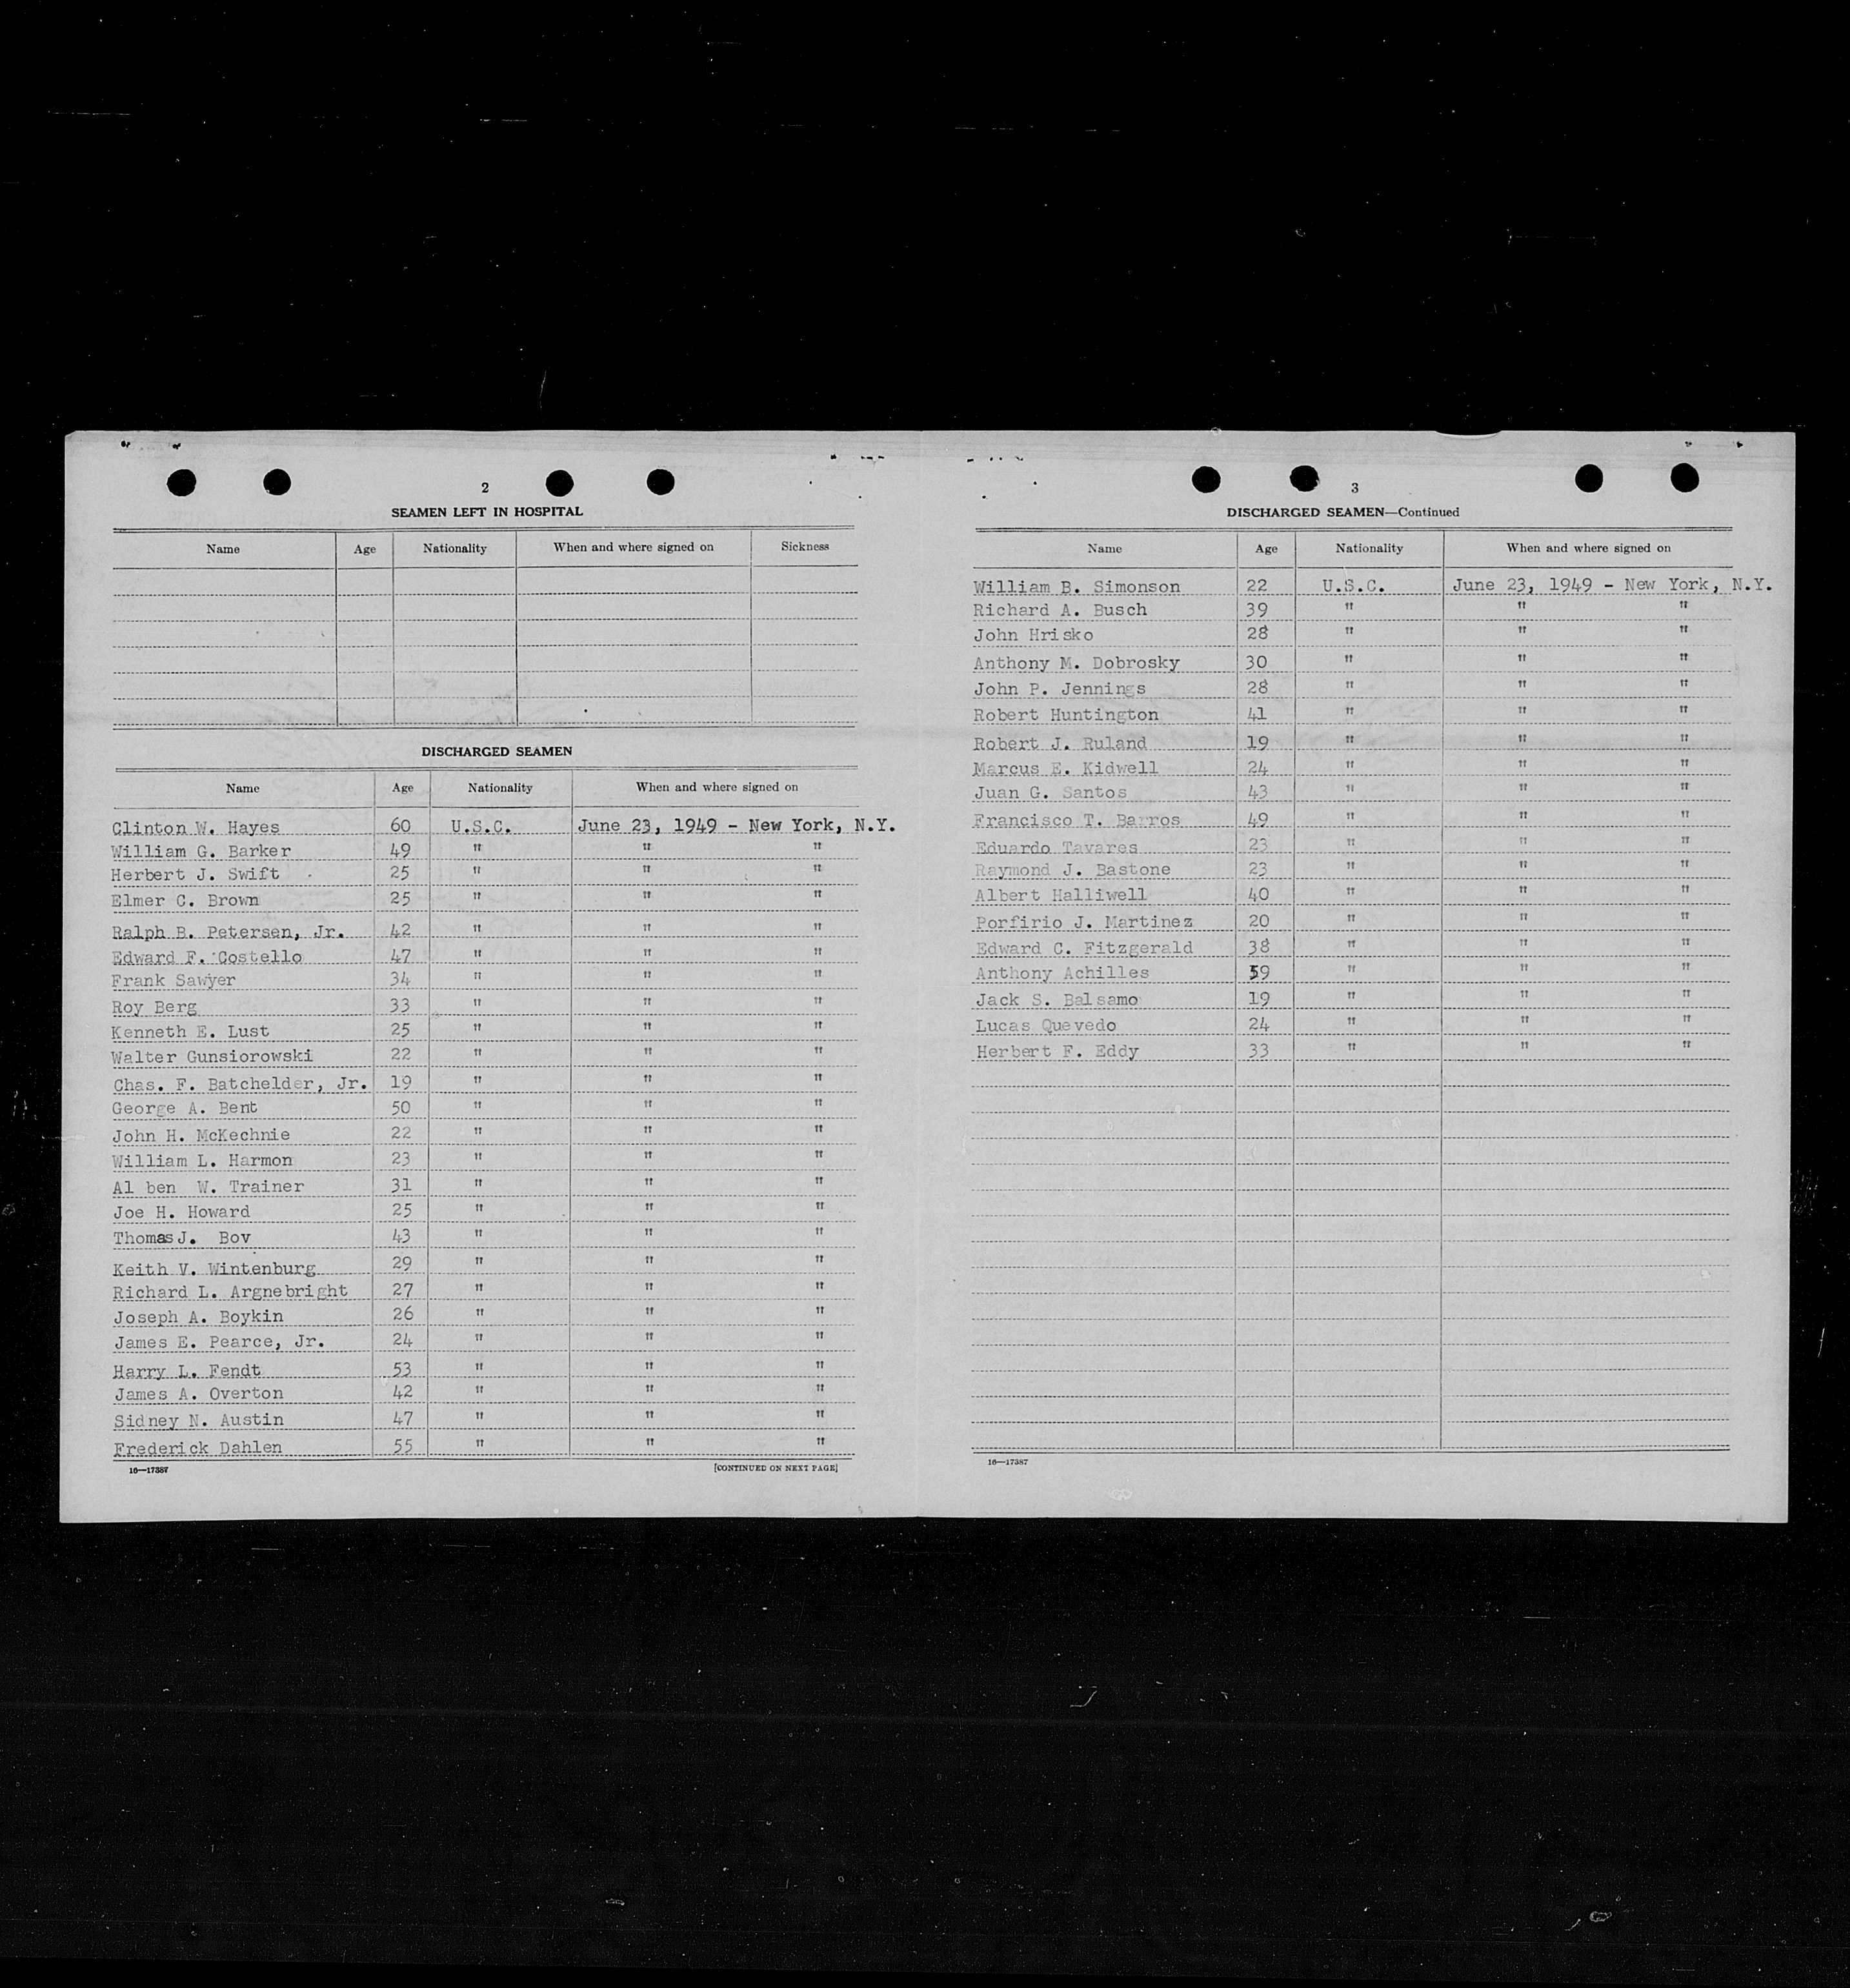 2
SEAMEN LEFT IN HOSPITAL
Name Age Nationality When and where signed on Sickness
DISCHARGED SEAMEN
Name Age Nationality When and where signed on
Clinton W. Hayes 60 U.S.C. June 23, 1949 - New York, N.Y.
William G. Barker 49 " " "
Herbert J. Swift 25 " " "
Elmer C. Brown 25 " " "
Ralph B. Petersen, Jr. 42 " " "
Edward F. Costello 47 " " "
Frank Sawyer 34 " " "
Roy Berg 33 " " "
Kenneth E. Lust 25 " " "
Walter Gunsiorowski 22 " " "
Chas. F. Batchelder, Jr. 19 " " "
George A. Bent 50 " " "
John H. McKechnie 22 " " "
William L. Harmon 23 " " "
Al ben W. Trainer 31 " " "
Joe H. Howard 25 " " "
Thomas J. Bov 43 " " "
Keith V. Wintenburg 29 " " "
Richard L. Argnebright 27 " " "
Joseph A. Boykin 26 " " "
James E. Pearce, Jr. 24 " " "
Harry L. Fendt 53 " " "
James A. Overton 42 " " "
Sidney N. Austin 47 " " "
Frederick Dahlen 55 " " "
16—17387 [CONTINUED ON NEXT PAGE]
3
DISCHARGED SEAMEN—Continued
Name Age Nationality When and where signed on
William B. Simonson 22 U.S.C. June 23, 1949 - New York, N.Y.
Richard A. Busch 39 " " "
John Hrisko 28 " " "
Anthony M. Dobrosky 30 " " "
John P. Jennings 28 " " "
Robert Huntington 41 " " "
Robert J. Ruland 19 " " "
Marcus E. Kidwell 24 " " "
Juan G. Santos 43 " " "
Francisco T. Barros 49 " " "
Eduardo Tavares 23 " " "
Raymond J. Bastone 23 " " "
Albert Halliwell 40 " " "
Porfirio J. Martinez 20 " " "
Edward C. Fitzgerald 38 " " "
Anthony Achilles 59 " " "
Jack S. Balsamo 19 " " "
Lucas Quevedo 24 " " "
Herbert F. Eddy 33 " " "
16—17387